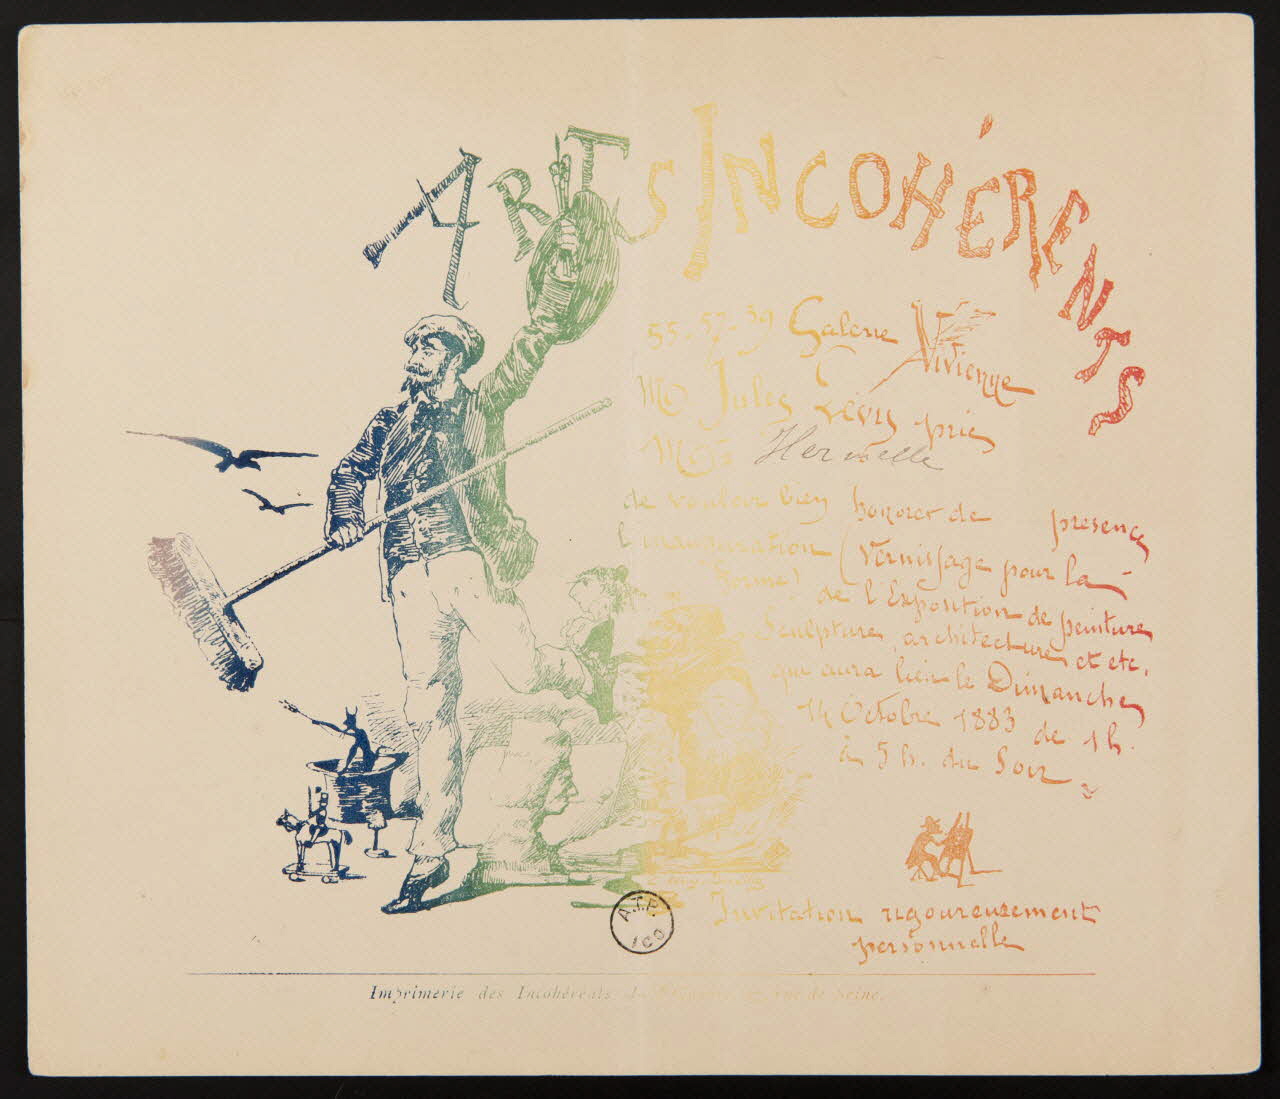 ARTS INCOHÉRENTS
55-57-59 Galerie Vivienne
Mr Jules Lévy prie
M
de vouloir bien honorer de presence
l'inauguration (Vernissage pour la
forme) de l'Exposition de peinture
Sculpture, architecture et etc.
qui aura lieu le Dimanche
14 Octobre 1883 de 1h.
à 5h. du Soir
Invitation rigoureusement
personnelle
A.T.P.
ICO
Imprimerie des Incohérents rue de Seine.